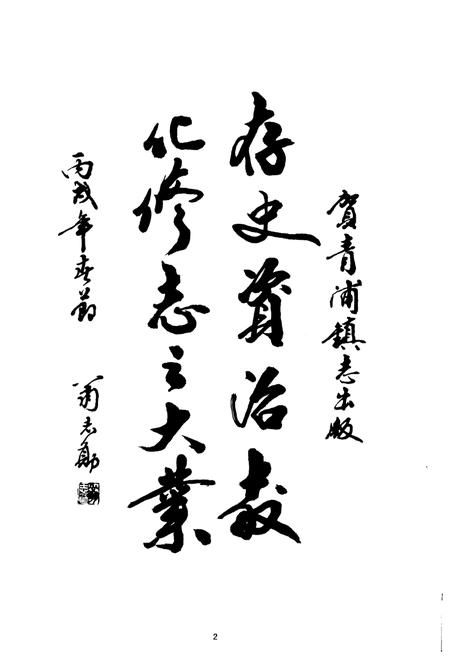 賀青浦鎮志出版
存史資治教
化修志之大業
丙戌年春節
2